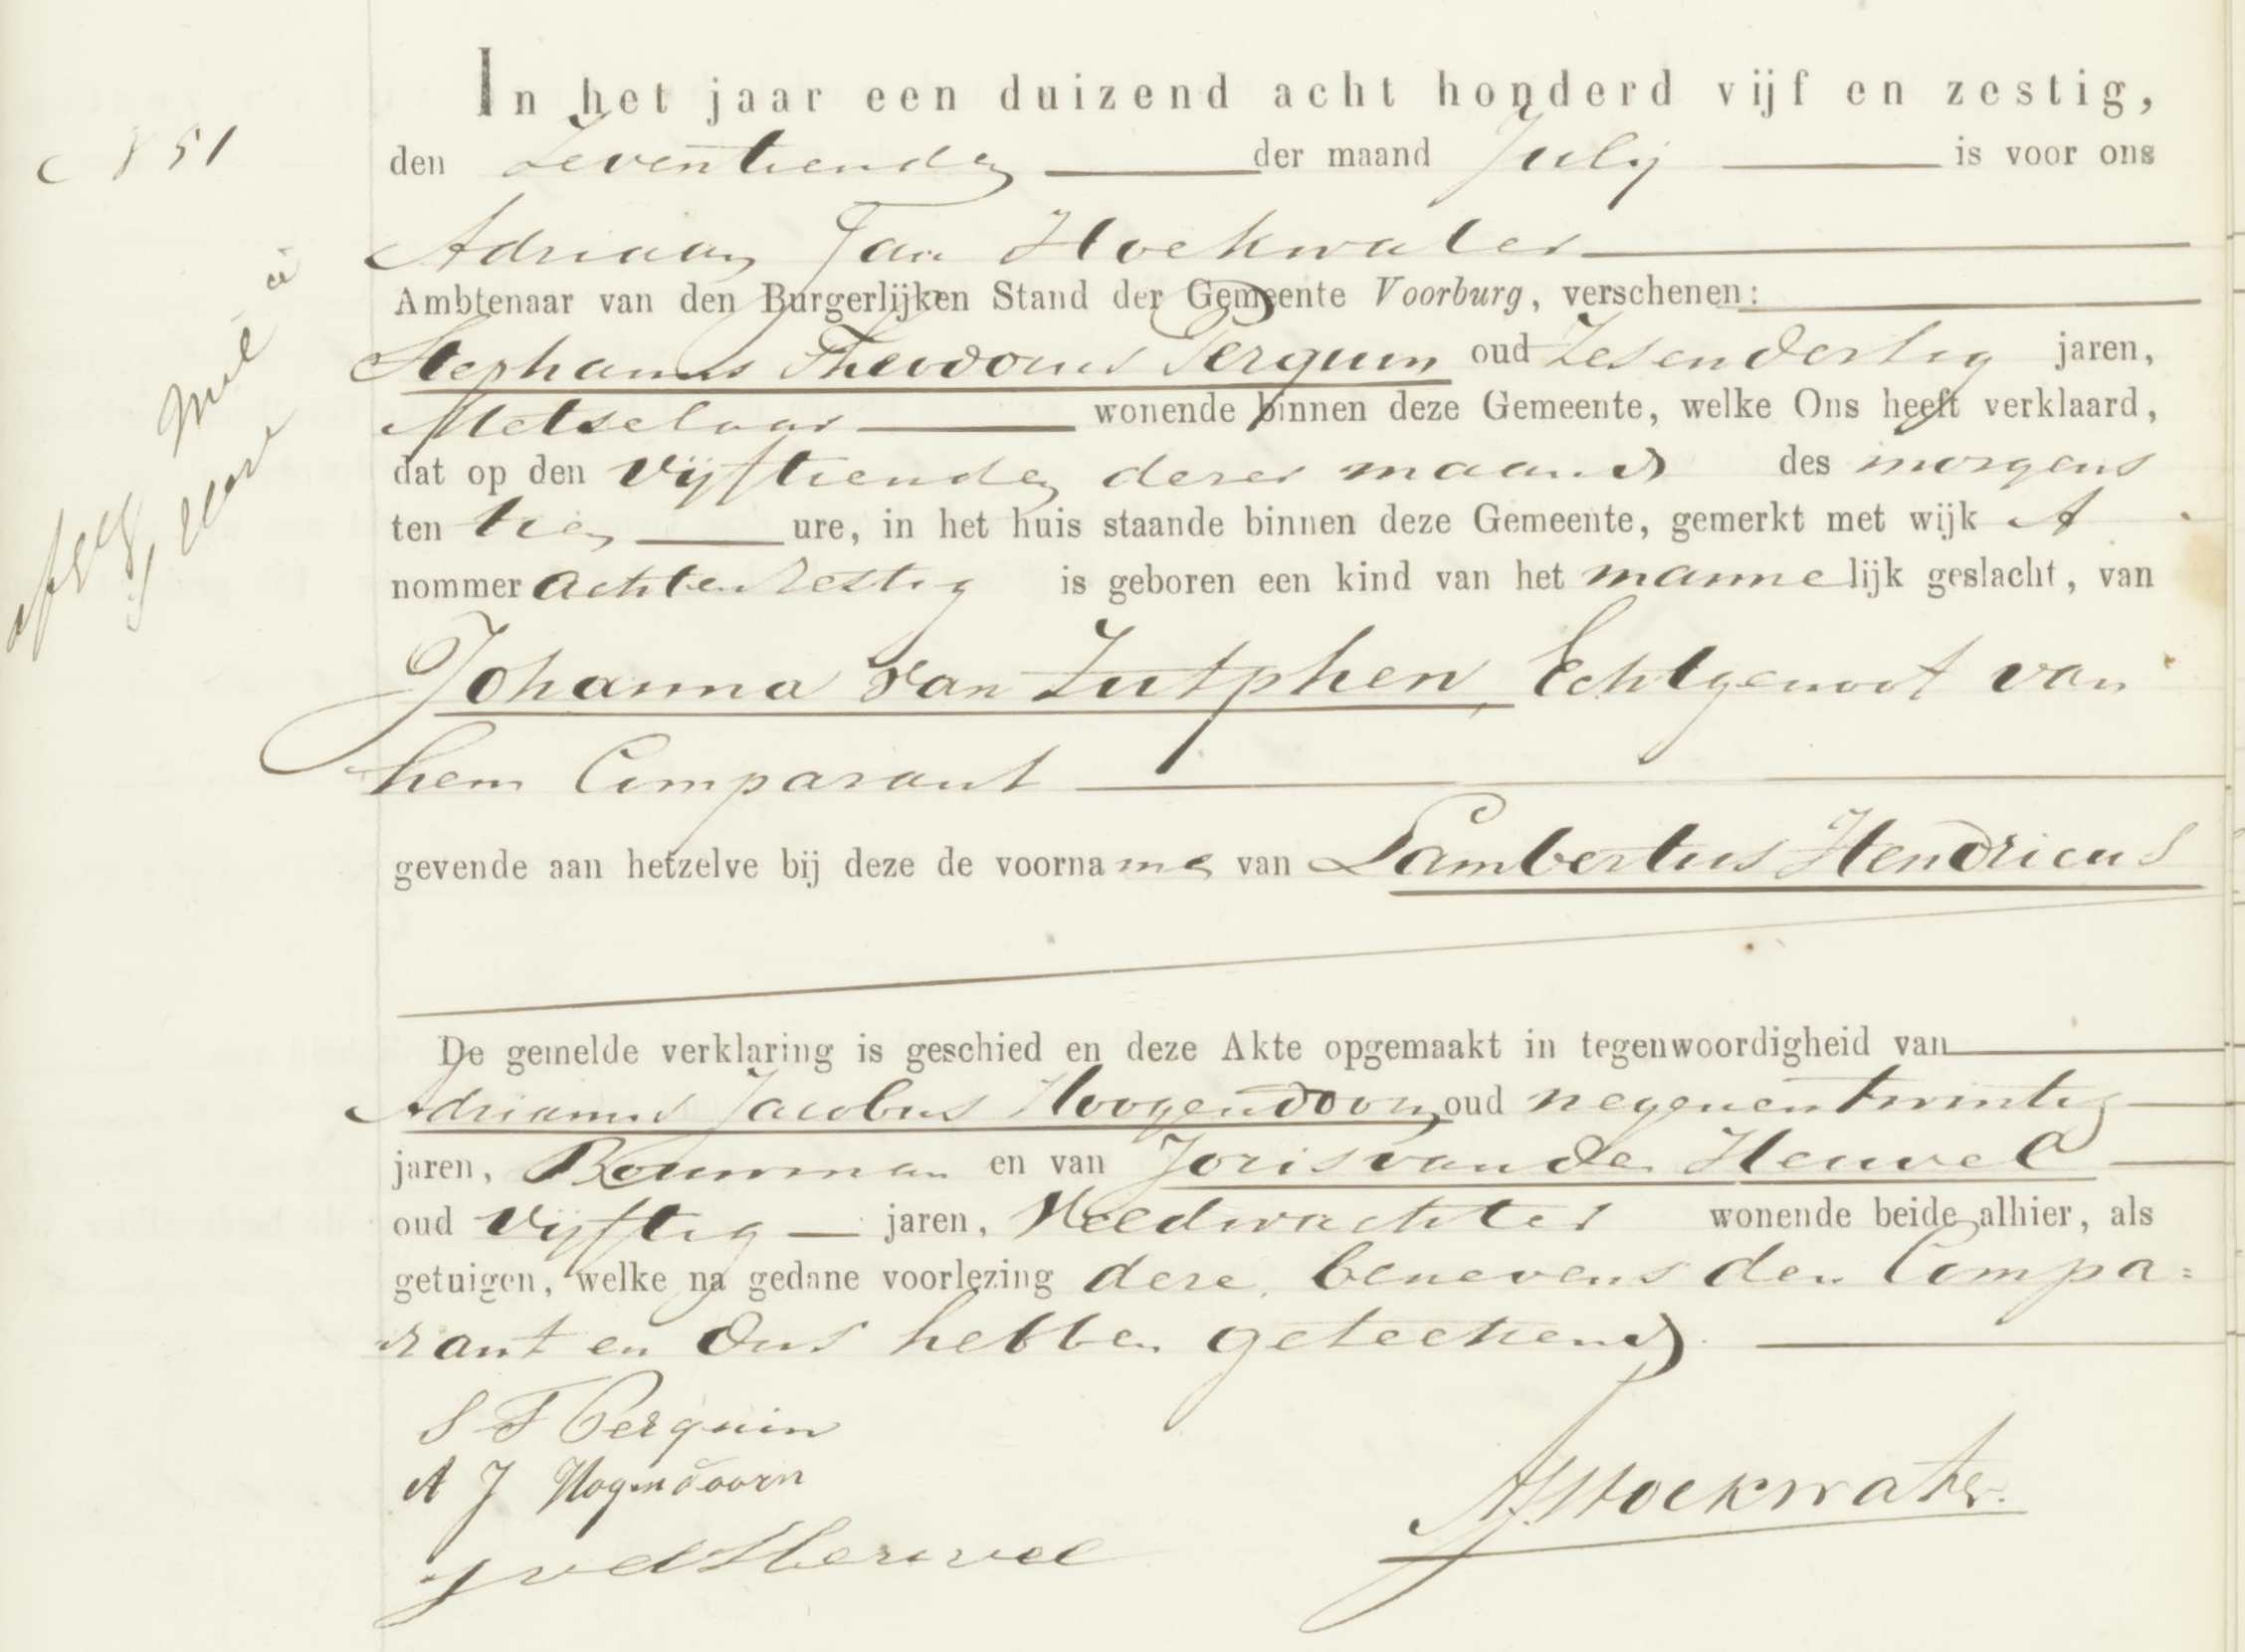 N 51
In het jaar een duizend acht honderd vijf en zestig,
den Zeventienden der maand Julij is voor ons
Adriaan Jan Hoekwater
Ambtenaar van den Burgerlijken Stand der Gemeente Voorburg, verschenen:
Stephanus Theodorus Perquin oud Zesendertig jaren,
Metselaar wonende binnen deze Gemeente, welke Ons heeft verklaard,
dat op den vijftienden dezer maand des morgens
ten tien ure, in het huis staande binnen deze Gemeente, gemerkt met wijk A
nommer achtenzestig is geboren een kind van het mannelijk geslacht, van
Johanna van Zutphen, Echtgenoot van
hem Comparant
gevende aan hetzelve bij deze de voorname van Lambertus Hendricus
De gemelde verklaring is geschied en deze Akte opgemaakt in tegenwoordigheid van
Adrianus Jacobus Hoogendoorn oud negenentwintig
jaren, Bouwman en van Joris van den Heuvel
oud vijftig jaren, Veldwachter wonende beide alhier, als
getuigen, welke na gedane voorlezing deze benevens den Compa=
rant en Ons hebben geteekend
S T Perquin
A J Hogendoorn
J vd Heuvel
AJHoekwater